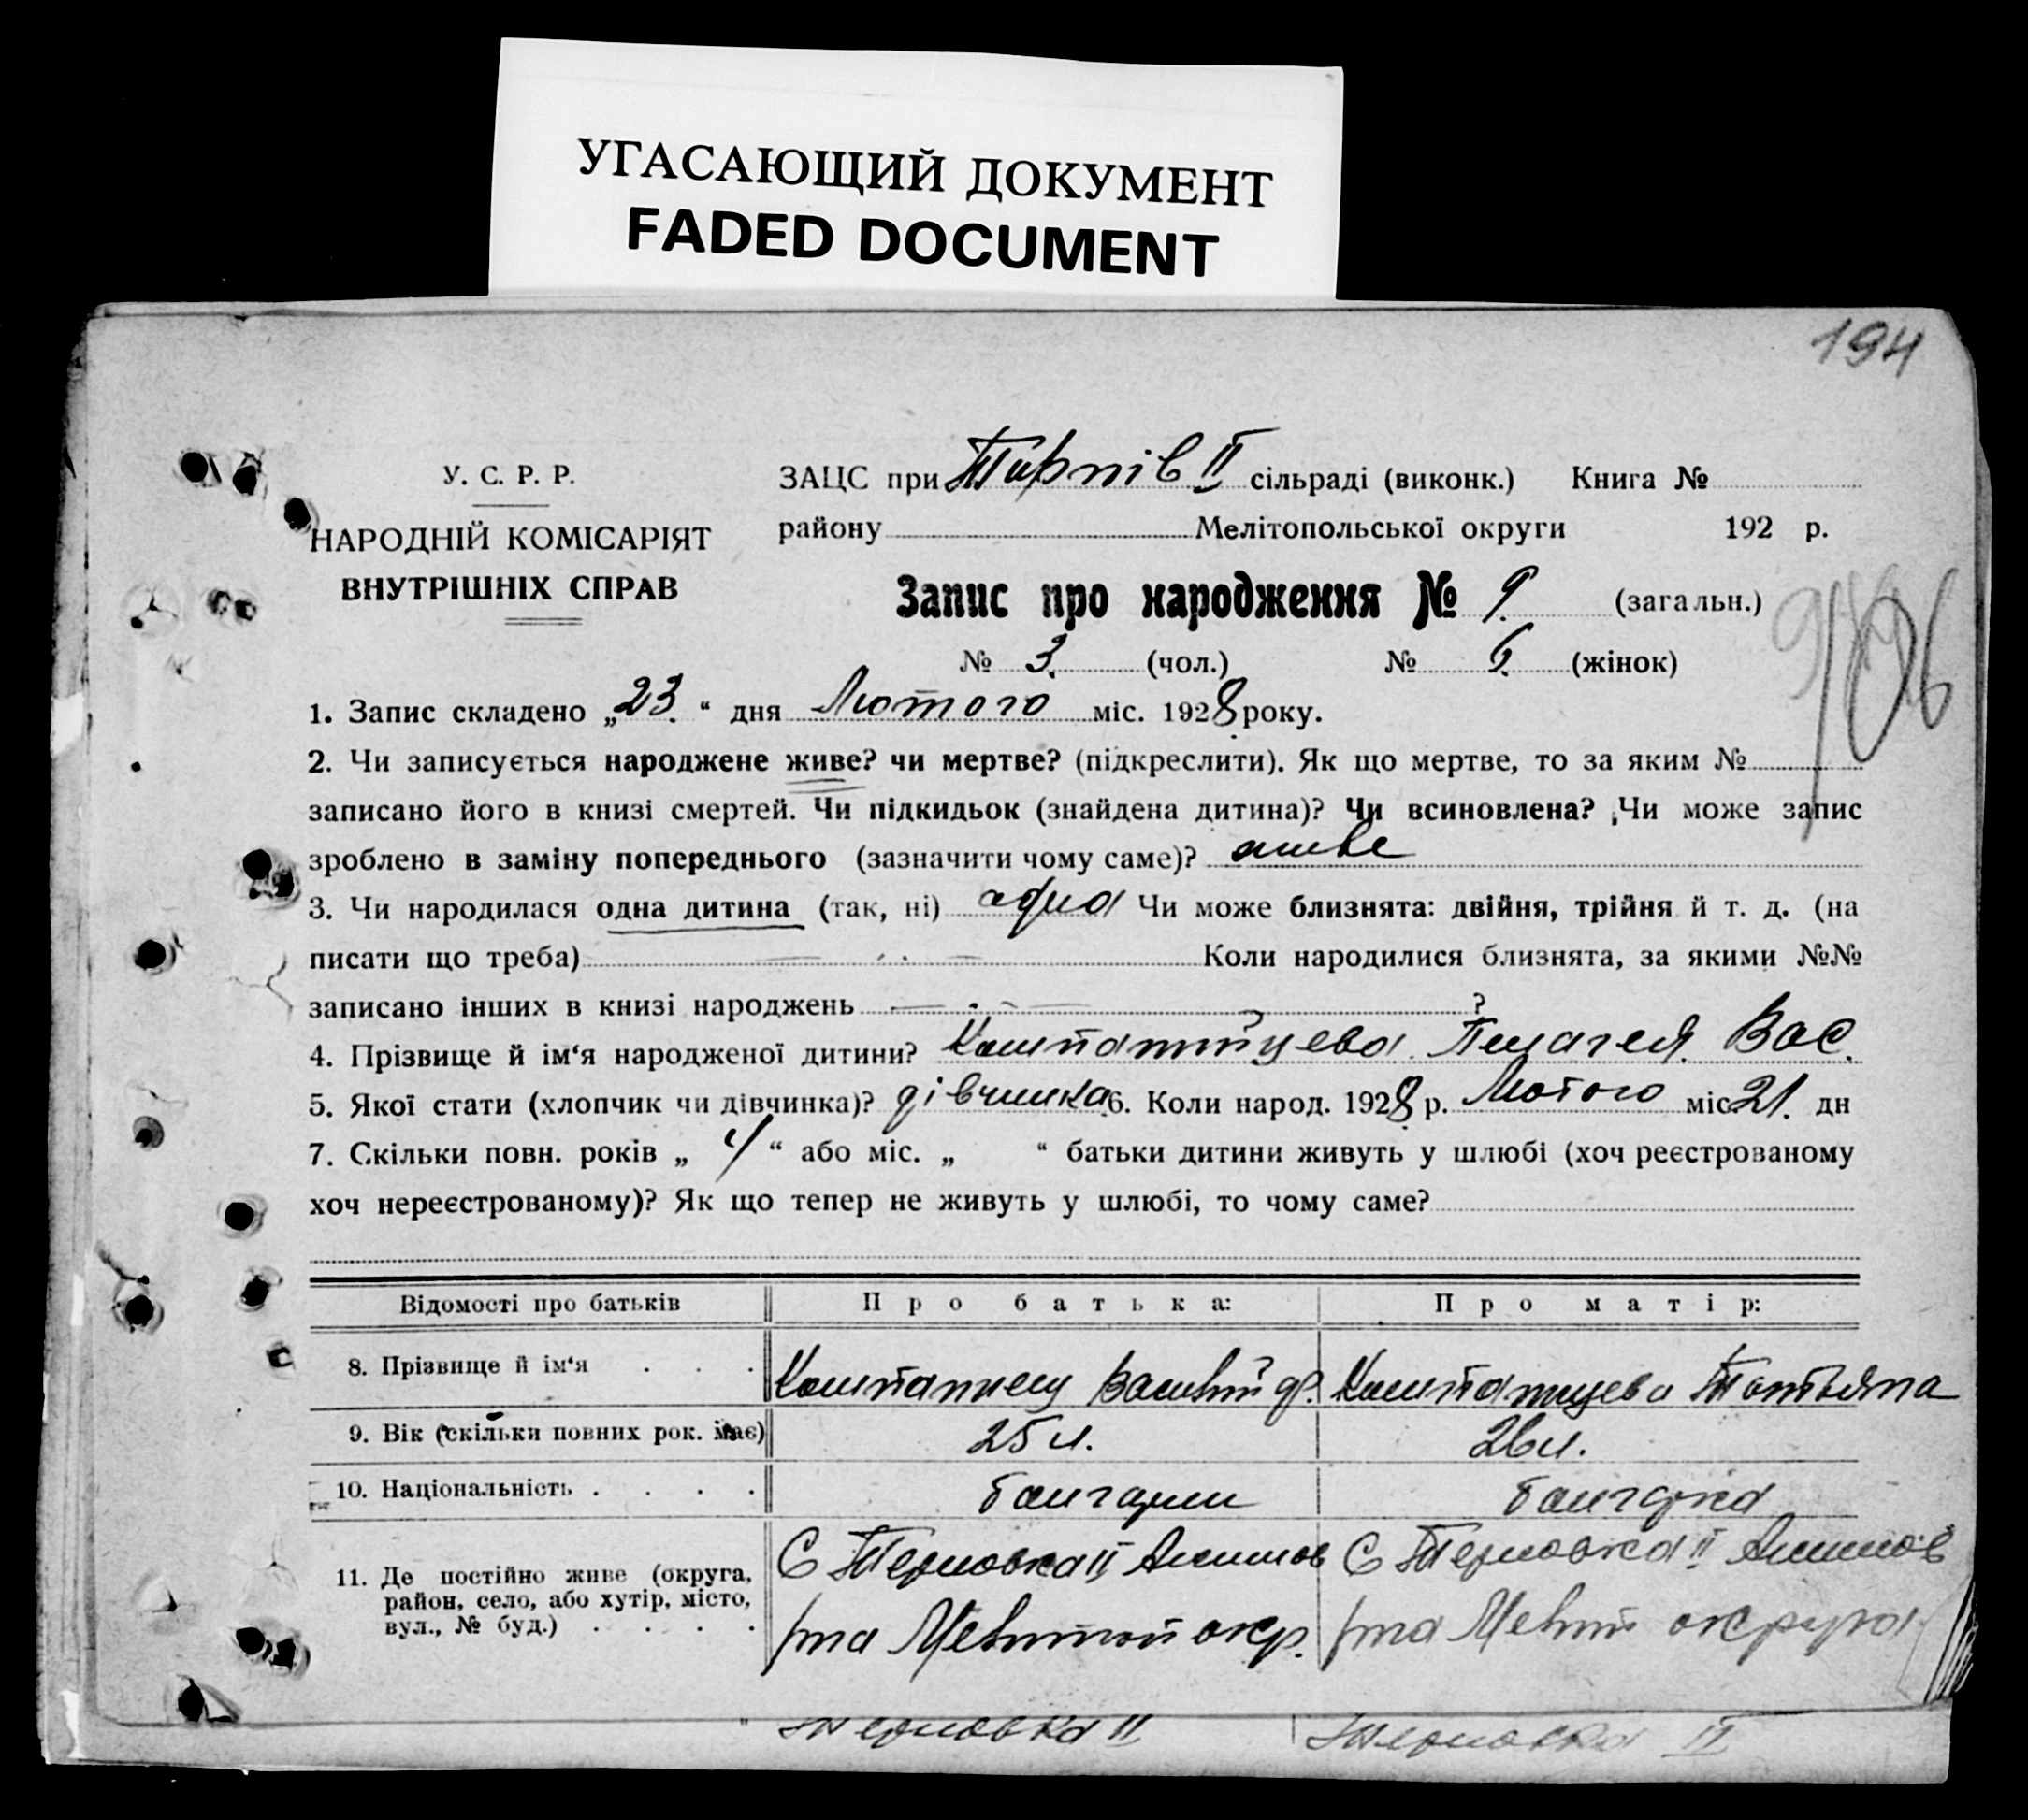 УГАСАЮЩИЙ ДОКУМЕНТ
FADED DOCUMENT
194
У. С. Р. Р.
НАРОДНІЙ КОМІСАРІЯТ
ВНУТРІШНІХ СПРАВ
ЗАЦС при II сільраді (виконк.) Книга №
району Мелітопольської округи 192 р.
Запис про народження № 9. (загальн.)
№ 3. (чол.) № 6. (жінок)
1. Запис складено „23.“ дня Лютого міс. 1928 року.
2. Чи записується народжене живе? чи мертве? (підкреслити). Як що мертве, то за яким №
записано його в книзі смертей. Чи підкидьок (знайдена дитина)? Чи всиновлена? Чи може запис
зроблено в заміну попереднього (зазначити чому саме)? живе
3. Чи народилася одна дитина (так, ні) одна Чи може близнята: двійня, трійня й т. д. (на
писати що треба) Коли народилися близнята, за якими №№
записано інших в книзі народжень ?
4. Прізвище й ім‘я народженої дитини? Пелагея Вас.
5. Якої стати (хлопчик чи дівчинка)? дівчинка 6. Коли народ. 1928 р. Лютого міс 21. дн
7. Скільки повн. років „ 4 “ або міс. „ “ батьки дитини живуть у шлюбі (хоч реєстрованому
хоч нереєстрованому)? Як що тепер не живуть у шлюбі, то чому саме?
Відомості про батьків Про батька: Про матір:
8. Прізвище й ім‘я . . . Татьяна
9. Вік (скільки повних рок. має) 25 л. 26 л.
10. Національність . . . . болгарин болгарка
11. Де постійно живе (округа, район, село, або хутір, місто, вул., № буд.) . . . .
С Терновка II Акимов С Терновка II Акимов
р/на Мелитоп окр. р/на Мелит округа
Терновка II Терновка II